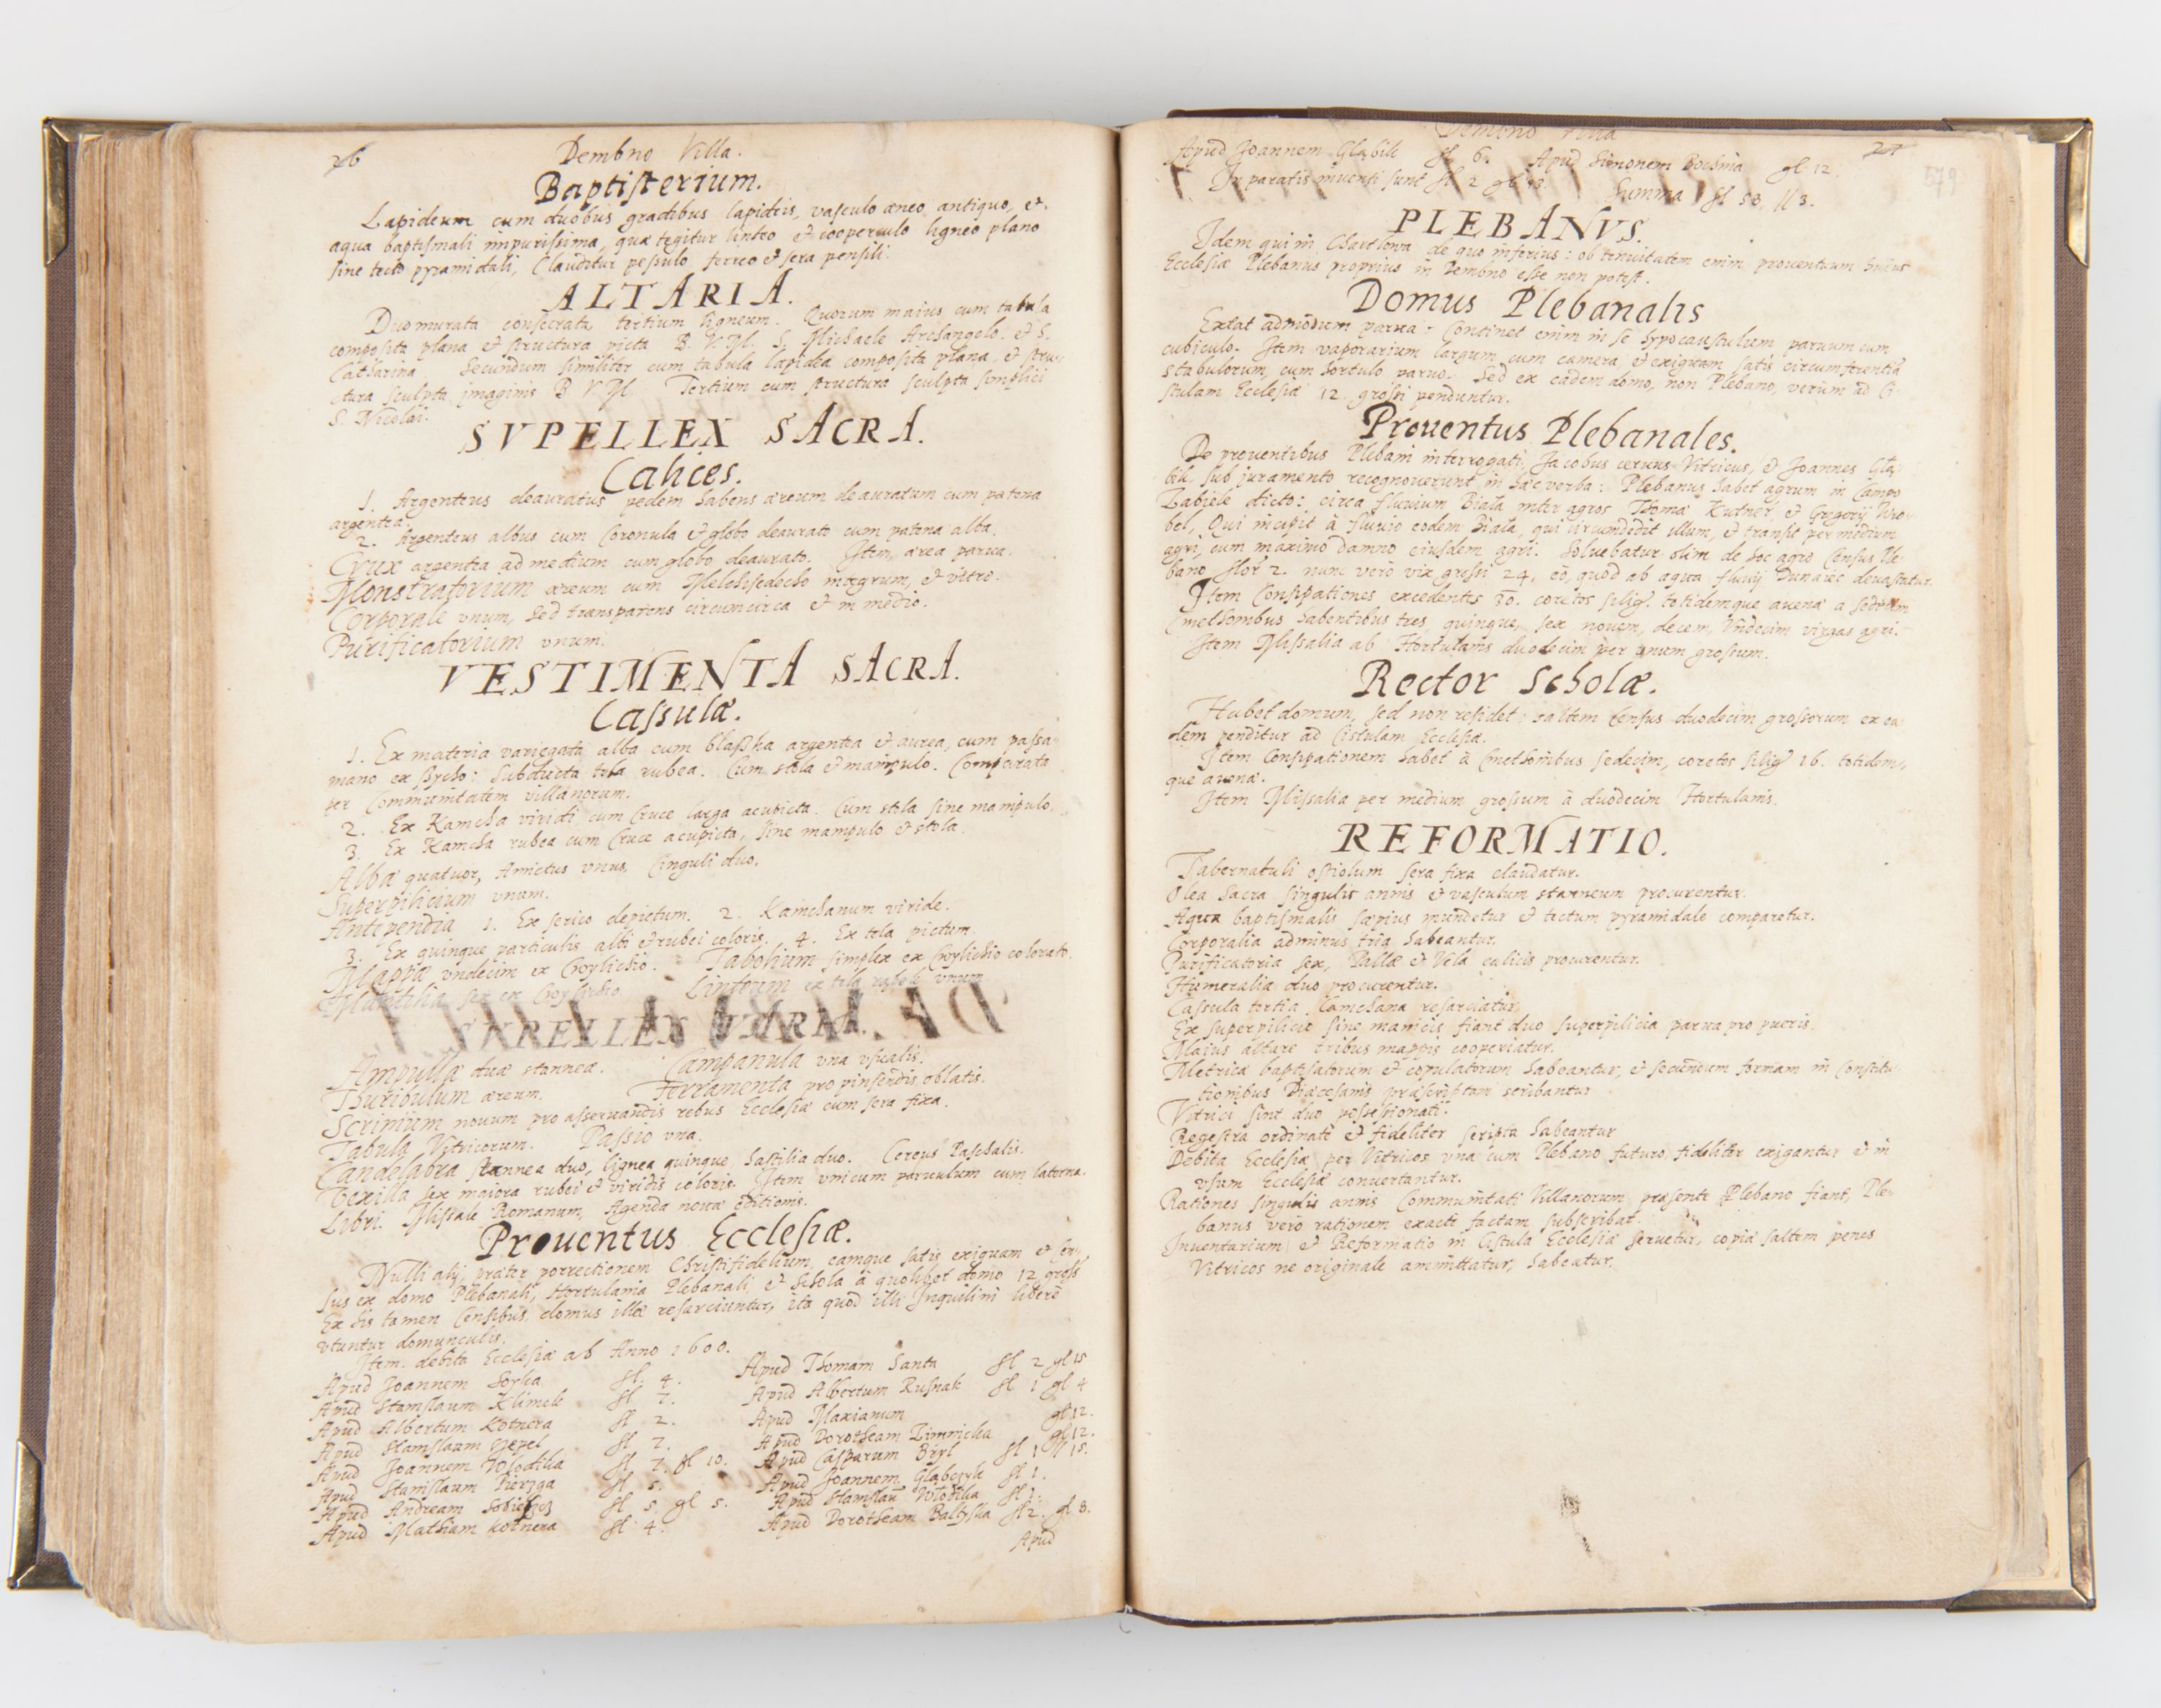 26
Dembno Villa.
Baptisterium.
Lapideum cum duobus gradibus lapideis, vasculo æneo antiquo, et
aqua baptismali impurissima, quæ tegitur linteo et cooperculo ligneo plano
sine tecto pyramidali, Clauditur pessulo ferreo et sera pensili.
ALTARIA.
Duo murata consecrata, tertium ligneum. Quorum maius cum tabula
composita plana et structura picta B. V. M. S. Michaele Archangelo. et S.
Catharina. Secundum similiter cum tabula lapidea composita plana, et stru-
ctura sculpta imaginis B. V. M. Tertium cum structura sculpta simplici
S. Nicolai.
SVPELLEX SACRA.
Calices.
1. Argenteus deauratus pedem habens æreum deauratum cum patena
argentea.
2. Argenteus albus cum Coronula et globo deaurato cum patena alba.
Crux argentea ad medium cum globo deaurato. Item, ærea parua.
Monstratorium æreum cum Melchisedecho integrum, et vitro.
Corporale vnum, sed transparens circumcirca et in medio.
Purificatorium vnum.
VESTIMENTA SACRA.
Cassulæ.
1. Ex materia variegata alba cum blassha argentea et aurea, cum passa-
mano ex : Subducta tela rubea. Cum stola et manipulo. Comparata
per Communitatem villanorum.
2. Ex Kamcha viridi cum Cruce larga acupicta. Cum stola sine manipulo.
3. Ex Kamcha rubea cum Cruce acupicta, sine manipulo et stola.
Albæ quatuor, Amictus vnus, Cinguli duo.
Superpilicium vnum.
Antependia 1. Ex serico depictum. 2. Kamchanum viride.
3. Ex quinque particulis albi et rubei coloris. 4. Ex tela pictum.
Mappæ vndecim ex Cwylichio. Tabolium simplex ex Cwylichio colorato.
Mantilia sex ex Cwylichio. Linteum ex tela vnum
SVPELLEX VARIA.
Ampullæ duæ stanneæ. Campanula vna vsualis.
Thuribulum æreum. Ferramenta pro pinsendis oblatis.
Scrinium nouum pro asseruandis rebus Ecclesiæ cum sera fixa.
Tabula Vitricorum. Passio vna.
Candelabra stannea duo, lignea quinque hastilia duo. Cereus Paschalis.
Vexilla sex maiora rubei et viridis coloris. Item vnicum paruulum cum laterna.
Libri. Missale Romanum, Agenda nouæ editionis.
Prouentus Ecclesiæ.
Nulli alij, præter porrectionem Christifidelium, eamque satis exiguam et Cen-
sus ex domo Plebanali, Hortulania Plebanali, et Schola à quolibet domo 12 gross
Ex his tamen Censibus domus illæ resarciuntur, ita quod illi Inquilini liberè
vtuntur domunculis.
Item debita Ecclesiæ ab Anno 1600.
Apud Joannem Soyka fl. 4. Apud Thomam Santa fl 2 gl 15
Apud Stanislaum Klimek fl 7. Apud Albertum Rusnak fl 1 gl 4
Apud Albertum Kotnera fl 2. Apud Marianum gl 12.
Apud Stanislaum fl 7. Apud Dorotheam Zimnicka gl 12.
Apud Joannem Wlodika fl 7. gl 10. Apud Casparum Biyl fl 1 gl 15.
Apud Stanislaum Pierzga fl 5. Apud Joannem Glabczyk fl 1.
Apud Andream fl 5 gl 5. Apud Stanislaū Wlodika fl 1.
Apud Mathiam Kotnera fl 4. Apud Dorotheam Balyska fl 2. gl 8.
Apud
Dembno Villa
27
579
Apud Joannem Gląbik fl 6. Apud Simonem Bochnia gl 12.
In paratis inuenti sunt fl 2 gl 13. Summa fl 58 // 3.
PLEBANVS.
Idem qui in Charthowa de quo inferius: ob tenuitatem enim prouentuum huius
Ecclesiæ Plebanus proprius in Dembno esse non potest.
Domus Plebanalis
Extat admodum parua: Continet enim in se hypocaustulum paruum cum
cubiculo. Item vaporarium largum cum camera, et exiguam satis circumferentiā
stabulorum, cum hortulo paruo. Sed ex eadem domo, non Plebano, verùm ad Ci-
stulam Ecclesiæ 12 grossi penduntur.
Prouentus Plebanales.
De prouentibus Plebani interrogati, Jacobus Vitricus, et Joannes Glą-
bik sub juramento recognouerunt in hæc verba: Plebanus habet agrum in Campo
Zabiele dicto: circa fluuium Biała inter agros Thomæ Kutner, et Gregorij Wro-
bel, Qui incipit à fluuio eodem Biała, qui circumdedit illum, et transit per medium
agri, cum maximo damno eiusdem agri. Soluebatur olim de hoc agro Census Ple
bano flor 2. nunc verò vix grossi 24, eò, quod ab aqua fluuij Dunaiec deuastatur.
Item Consipationes excedentes 30. coretos silig. totidemque auenæ a sedecim
Cmethonibus habentibus tres, quinque, sex nouem, decem, Vndecim virgas agri.
Item Missalia ab Hortulanis duodecim per vnum grossum.
Rector Scholæ.
Habet domum, sed non residet: saltem Census duodecim grossorum ex ea-
dem penditur ad Cistulam Ecclesiæ.
Item Consipationem habet à Cmethonibus sedecim, coretos silig. 16. totidem-
que auenæ.
Item Missalia per medium grossum à duodecim Hortulanis.
REFORMATIO.
Tabernaculi ostiolum sera fixa claudatur.
Olea Sacra singulis annis et vasculum stanneum procurentur.
Aqua baptismalis sæpius mundetur et tectum pyramidale comparetur.
Corporalia adminus tria habeantur.
Purificatoria sex, Pallæ et Vela calicis procurentur.
Humeralia duo procurentur.
Cassula tertia Kamchana resarciatur.
Ex superpilicio sine manicis fiant duo superpilicia parua pro pueris.
Maius altare tribus mappis cooperiatur.
Metrica baptisatorum et copulatorum habeantur, et secundum formam in Constitu-
tionibus Diæcesanis præscriptam scribantur
Vitrici sint duo possessionati.
Regestra ordinatè et fideliter scripta habeantur
Debita Ecclesiæ per Vitricos vna cum Plebano futuro fideliter exigantur et in
vsum Ecclesiæ conuertantur.
Rationes singulis annis Communitati Villanorum præsente Plebano fiant, Ple-
banus verò rationem exactè factam subscribat.
Inuentarium et Reformatio in Cistula Ecclesiæ seruetur, copia saltem penes
Vitricos ne originale amittatur, habeatur.